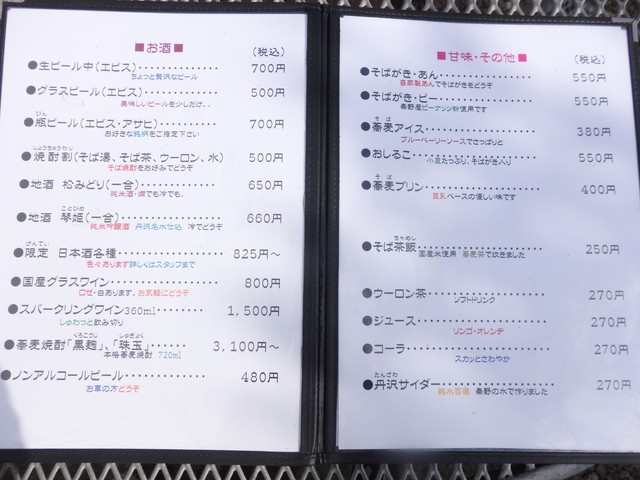 ■お酒■
(税込)
●生ビール中(エビス)・・・・・・・・・・・・・・ 700円
ちょっと贅沢なビール
●グラスビール(エビス)・・・・・・・・・・・・ 500円
美味しいビールを少しだけ、、
びん
●瓶ビール(エビス・アサヒ)・・・・・・ 700円
お好きな銘柄をご指定下さい
しょうちゅうわり
●焼酎割(そば湯、そば茶、ウーロン、水) 500円
そば焼酎をお好みでどうぞ
●地酒 松みどり(一合)・・・・・・・・・・・ 650円
純米酒・燗でも冷でも。
ことひめ
●地酒 琴姫(一合)・・・・・・・・・・・・・・ 660円
純米吟醸酒 丹沢名水仕込 冷でどうぞ
げんてい
●限定 日本酒各種・・・・・・・・・・・・・・ 825円~
色々あります詳しくはスタッフまで
●国産グラスワイン・・・・・・・・・・・・・・ 800円
ロゼ・白あります、お気軽にどうぞ
●スパークリングワイン360ml・・・・・・ 1,500円
しゅわっと飲み切り
くろこうじ しゅぎょく
●蕎麦焼酎「黒麹」、「珠玉」・・・・・・ 3,100円~
本格蕎麦焼酎 720ml
●ノンアルコールビール・・・・・・・・・・・・ 480円
お車の方どうぞ
■甘味・その他■
(税込)
●そばがき・あん・・・・・・・・・・・・・・ 550円
自家製あんでそばがきをどうぞ
●そばがき・ピー・・・・・・・・・・・・・・ 550円
秦野産ピーナッツ粉使用です
そば
●蕎麦アイス・・・・・・・・・・・・・・・・・・ 380円
ブルーベリーソースでさっぱりと
●おしるこ・・・・・・・・・・・・・・・・・・・・ 550円
小豆たっぷり、そばがき入り
そば
●蕎麦プリン・・・・・・・・・・・・・・・・・・ 400円
豆乳ベースの優しい味です
ちゃめし
●そば茶飯・・・・・・・・・・・・・・・・・・・・ 250円
国産米使用 蕎麦茶で炊きました
●ウーロン茶・・・・・・・・・・・・・・・・・・ 270円
ソフトドリンク
●ジュース・・・・・・・・・・・・・・・・・・・・ 270円
リンゴ・オレンヂ
●コーラ・・・・・・・・・・・・・・・・・・・・・・ 270円
スカッとさわやか
たんざわ
●丹沢サイダー・・・・・・・・・・・・・・・・ 270円
銘水百選 秦野の水で作りました